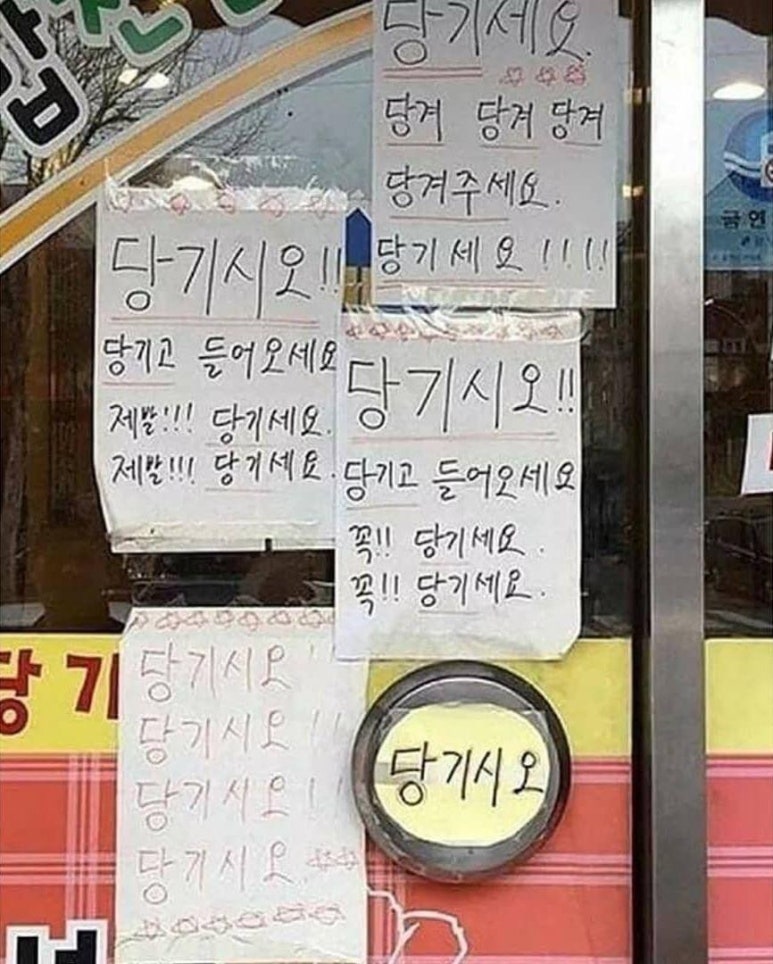 당기세요.
당겨 당겨 당겨
당겨주세요.
당기세요!!!!
당기시오!!
당기고 들어오세요
제발!!! 당기세요.
제발!!! 당기세요.
당기시오!!
당기고 들어오세요
꼭!! 당기세요.
꼭!! 당기세요.
당기시오!!
당기시오!!
당기시오!!
당기시오
당기시오
당기
금연